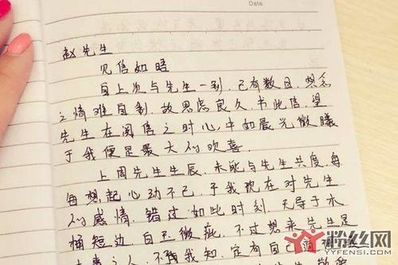 Date
赵先生
见信如晤
自上次与先生一别，已有数日，想念
之情难自制，故思虑良久书此信，望
先生在阅信之时心中如晨光微曦
于我便是最大的欢喜。
上周先生生辰，未能与先生共度，每
每想起心动不已，于我现在对先生
的感情，错过如此时刻，无异于木
桶短边，白玉微疵，不过想来先生是
之人，不我知，定有自己
粉丝网
YYFENSI.COM